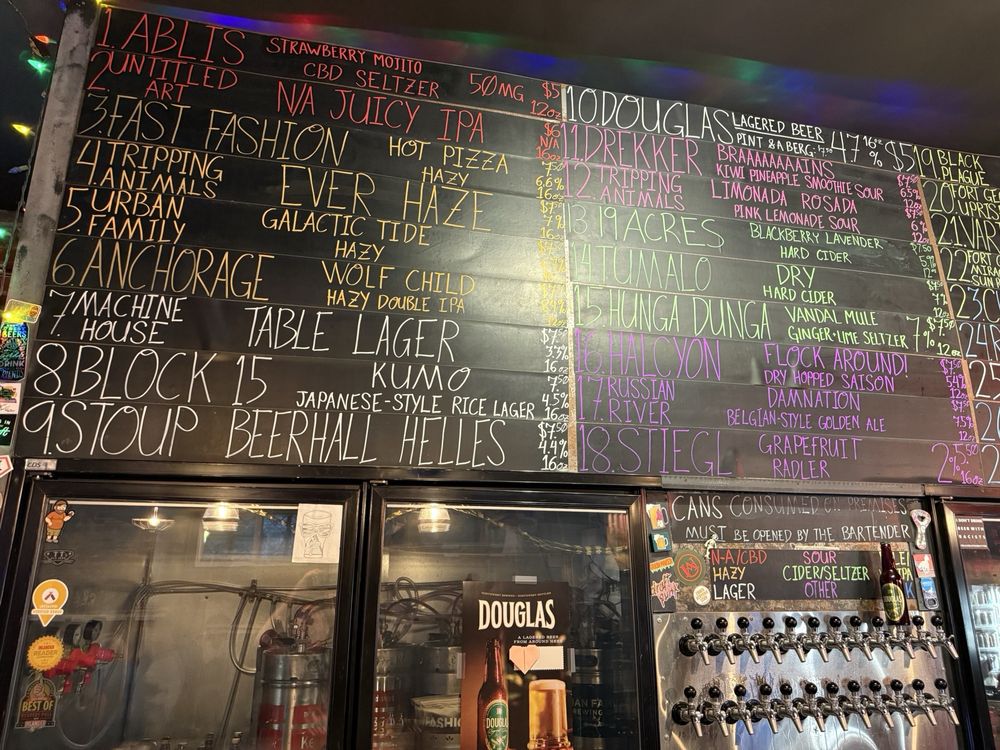 1. ABLIS STRAWBERRY MOJITO
CBD SELTZER 50MG $5
12oz
2. UNTITLED
ART N/A JUICY IPA $6
N/A
16oz
3. FAST FASHION HOT PIZZA
HAZY 6.6%
16oz
4. TRIPPING
ANIMALS EVER HAZE
7%
16oz
5. URBAN
FAMILY GALACTIC TIDE
HAZY
6. ANCHORAGE WOLF CHILD
HAZY DOUBLE IPA
7. MACHINE
HOUSE TABLE LAGER
16oz
8. BLOCK 15 KUMO
JAPANESE-STYLE RICE LAGER 4.5%
16oz
9. STOUP BEERHALL HELLES $7.50
4.4%
16oz
10. DOUGLAS LAGERED BEER
PINT & A BERG: 4.7% 16oz $5
11. DREKKER BRAAAAAAAINS
KIWI PINEAPPLE SMOOTHIE SOUR
12. TRIPPING
ANIMALS LIMONADA ROSADA
PINK LEMONADE SOUR
13. 19 ACRES BLACKBERRY LAVENDER
HARD CIDER
14. TUMALO DRY
HARD CIDER
15. HUNGA DUNGA VANDAL MULE
GINGER+LIME SELTZER 7% $7.50
12oz
16. HALCYON FLOCK AROUND!
DRY HOPPED SAISON
17. RUSSIAN
RIVER DAMNATION
BELGIAN-STYLE GOLDEN ALE 7.5%
12oz
18. STIEGL GRAPEFRUIT
RADLER 2% 5.50
16oz
19 BLACK
PLAGUE
20 FORT GE
UPRIS
21. VART
22 FORT G
MIRA
SUN
23 C
24 R
25
2
2
CANS CONSUMED ON PREMISES
MUST BE OPENED BY THE BARTENDER
N-A/CBD SOUR
HAZY CIDER/SELTZER IPA
LAGER OTHER
DOUGLAS
A LAGERED BEER
FROM AROUND HERE
BEST OF